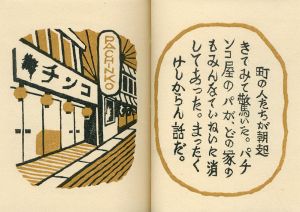 PACHINKO
チンコ
町の人たちが朝起
きてみて驚いた。パチ
ンコ屋の パが、どの家の
もみんなていねいに消
してあった。まったく
けしからん話だ。